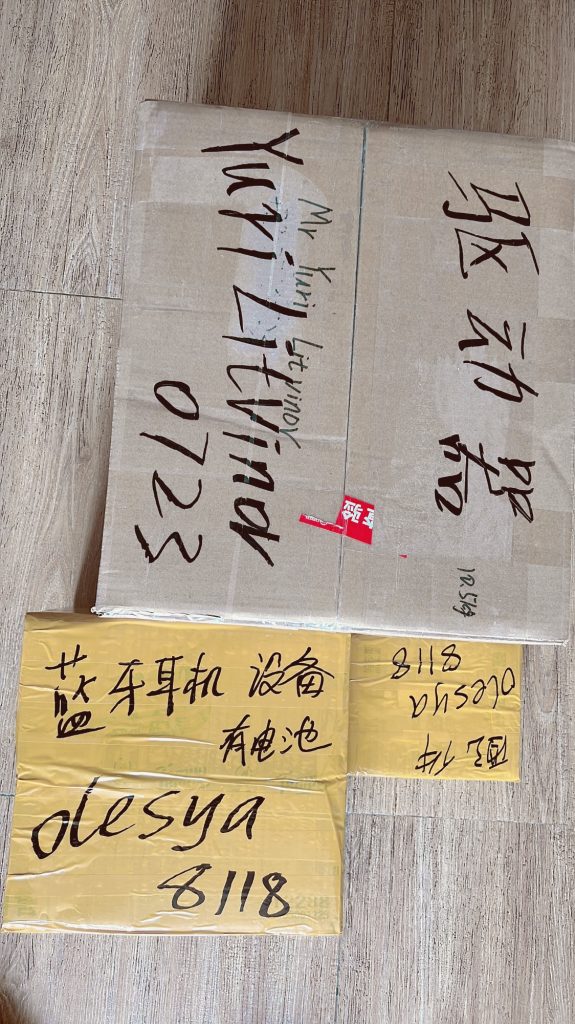 驱动器
12.5kg
Mr Yuri Litvinov
Yuri Litvinov
0723
蓝牙耳机 设备
有电池
olesya
8118
配件
olesya
8118